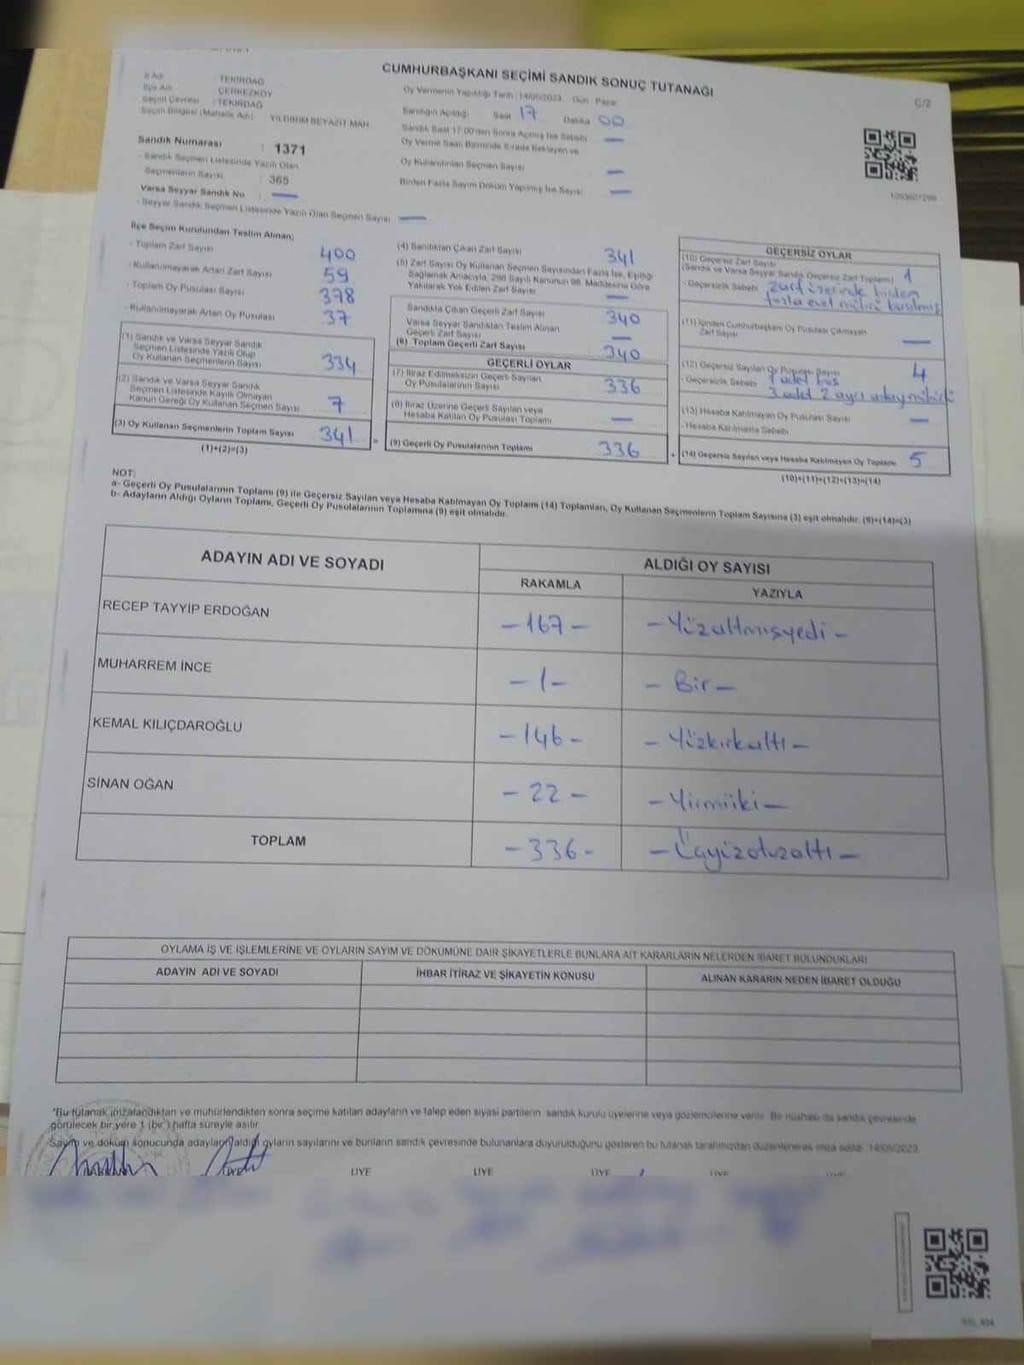 CUMHURBAŞKANI SEÇİMİ SANDIK SONUÇ TUTANAĞI
C/2
İl Adı : TEKİRDAĞ
İlçe Adı : ÇERKEZKÖY
Seçim Çevresi : TEKİRDAĞ
Seçim Bölgesi (Mahalle Adı) : YILDIRIM BEYAZIT MAH
Sandık Numarası : 1371
- Sandık Seçmen Listesinde Yazılı Olan
Seçmenlerin Sayısı : 365
Varsa Seyyar Sandık No : —
- Seyyar Sandık Seçmen Listesinde Yazılı Olan Seçmen Sayısı —
Oy Vermenin Yapıldığı Tarih : 14/05/2023 Gün : Pazar
Sandığın Açıldığı Saat 17 Dakika 00
Sandık Saat 17:00'den Sonra Açılmış İse Sebebi —
Oy Verme Saati Bitiminde Sırada Bekleyen ve
Oy Kullandırılan Seçmen Sayısı —
Birden Fazla Sayım Döküm Yapılmış İse Sayısı —
İlçe Seçim Kurulundan Teslim Alınan;
- Toplam Zarf Sayısı 400
- Kullanılmayarak Artan Zarf Sayısı 59
- Toplam Oy Pusulası Sayısı 378
- Kullanılmayarak Artan Oy Pusulası 37
(1) Sandık ve Varsa Seyyar Sandık
Seçmen Listesinde Yazılı Olup
Oy Kullanan Seçmenlerin Sayısı 334
(2) Sandık ve Varsa Seyyar Sandık
Seçmen Listesinde Kayıtlı Olmayan
Kanun Gereği Oy Kullanan Seçmen Sayısı 7
(3) Oy Kullanan Seçmenlerin Toplam Sayısı 341 =
(1)+(2)=(3)
(4) Sandıktan Çıkan Zarf Sayısı 341
(5) Zarf Sayısı Oy Kullanan Seçmen Sayısından Fazla İse, Eşitliği
Sağlamak Amacıyla, 298 Sayılı Kanunun 98. Maddesine Göre
Yakılarak Yok Edilen Zarf Sayısı —
Sandıkta Çıkan Geçerli Zarf Sayısı 340
Varsa Seyyar Sandıktan Teslim Alınan
Geçerli Zarf Sayısı —
(6) Toplam Geçerli Zarf Sayısı 340
GEÇERLİ OYLAR
(7) İtiraz Edilmeksizin Geçerli Sayılan
Oy Pusulalarının Sayısı 336
(8) İtiraz Üzerine Geçerli Sayılan veya
Hesaba Katılan Oy Pusulası Toplamı —
(9) Geçerli Oy Pusulalarının Toplamı 336 +
GEÇERSİZ OYLAR
(10) Geçersiz Zarf Sayısı
(Sandık ve Varsa Seyyar Sandık Geçersiz Zarf Toplamı) 1
- Geçersizlik Sebebi : zarf üzerinde birden
fazla evet mührü basılmış
(11) İçinden Cumhurbaşkanı Oy Pusulası Çıkmayan
Zarf Sayısı —
(12) Geçersiz Sayılan Oy Pusulası Sayısı 4
- Geçersizlik Sebebi : 1 adet boş
3 adet 2 ayrı aday mühürlü
(13) Hesaba Katılmayan Oy Pusulası Sayısı —
- Hesaba Katılmama Sebebi
(14) Geçersiz Sayılan veya Hesaba Katılmayan Oy Toplamı 5
(10)+(11)+(12)+(13)=(14)
NOT;
a- Geçerli Oy Pusulalarının Toplamı (9) ile Geçersiz Sayılan veya Hesaba Katılmayan Oy Toplamı (14) Toplamları, Oy Kullanan Seçmenlerin Toplam Sayısına (3) eşit olmalıdır. (9)+(14)=(3)
b- Adayların Aldığı Oyların Toplamı, Geçerli Oy Pusulalarının Toplamına (9) eşit olmalıdır.
ADAYIN ADI VE SOYADI
ALDIĞI OY SAYISI
RAKAMLA YAZIYLA
RECEP TAYYİP ERDOĞAN -167- -Yüzaltmışyedi-
MUHARREM İNCE -1- -Bir-
KEMAL KILIÇDAROĞLU -146- -Yüzkırkaltı-
SİNAN OĞAN -22- -Yirmiiki-
TOPLAM -336- -Üçyüzotuzaltı-
OYLAMA İŞ VE İŞLEMLERİNE VE OYLARIN SAYIM VE DÖKÜMÜNE DAİR ŞİKAYETLERLE BUNLARA AİT KARARLARIN NELERDEN İBARET BULUNDUKLARI
ADAYIN ADI VE SOYADI
İHBAR İTİRAZ VE ŞİKAYETİN KONUSU
ALINAN KARARIN NEDEN İBARET OLDUĞU
*Bu tutanak imzalandıktan ve mühürlendikten sonra seçime katılan adayların ve talep eden siyasi partilerin sandık kurulu üyelerine veya gözlemcilerine verilir. Bir nüshası da sandık çevresinde
görülecek bir yere 1 (bir) hafta süreyle asılır.
Sayım ve döküm sonucunda adayların aldığı oyların sayılarını ve bunların sandık çevresinde bulunanlara duyurulduğunu gösteren bu tutanak tarafımızdan düzenlenerek imza edildi. 14/05/2023
BAŞKAN ÜYE ÜYE ÜYE ÜYE ÜYE